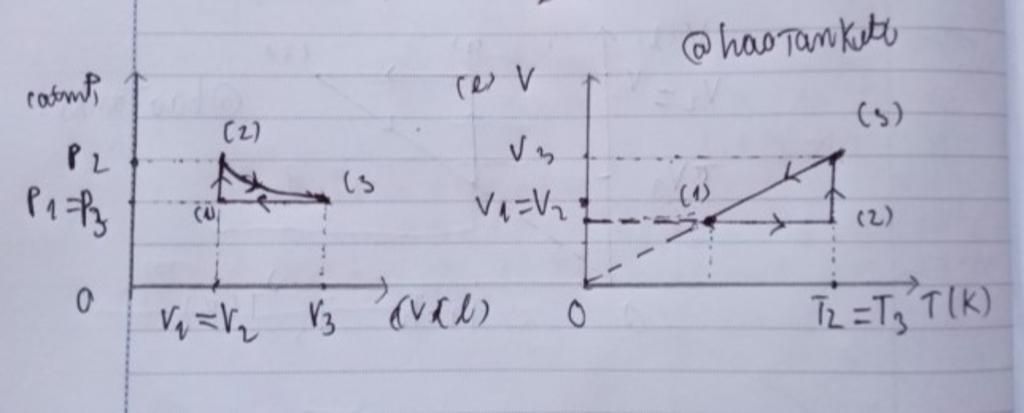 @haoTanKett
(atm)P
(l) V
(2)
(3)
P2
V3
(3
P1=P3
(1)
V1=V2
(1)
(2)
0
V1=V2
V3
(V(l)
0
T2=T3
T(K)